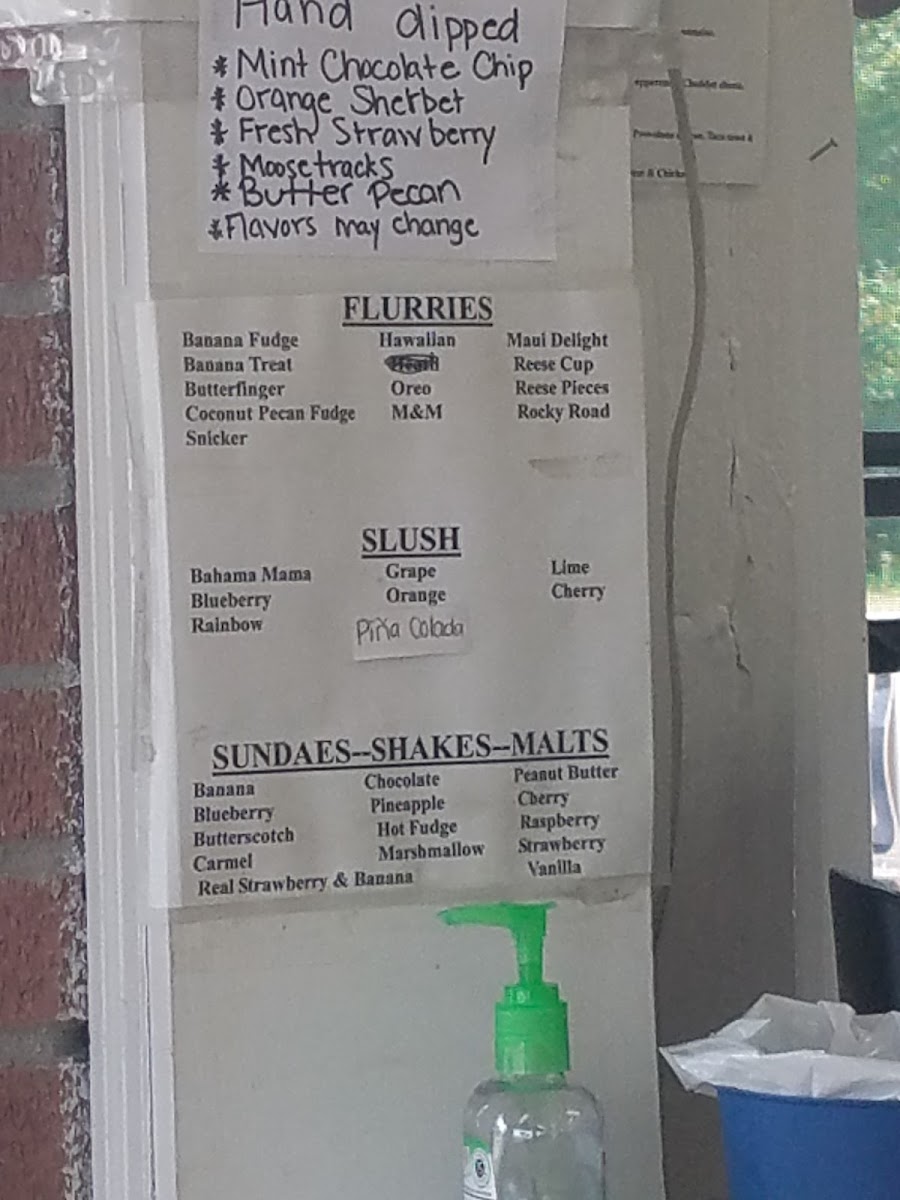 Hand dipped
* Mint Chocolate Chip
* Orange Sherbet
* Fresh Strawberry
* Moosetracks
* Butter Pecan
* Flavors may change
FLURRIES
Banana Fudge Hawaiian Maui Delight
Banana Treat Reese Cup
Butterfinger Oreo Reese Pieces
Coconut Pecan Fudge M&M Rocky Road
Snicker
SLUSH
Bahama Mama Grape Lime
Blueberry Orange Cherry
Rainbow Piña Colada
SUNDAES--SHAKES--MALTS
Banana Chocolate Peanut Butter
Blueberry Pineapple Cherry
Butterscotch Hot Fudge Raspberry
Carmel Marshmallow Strawberry
Real Strawberry & Banana Vanilla